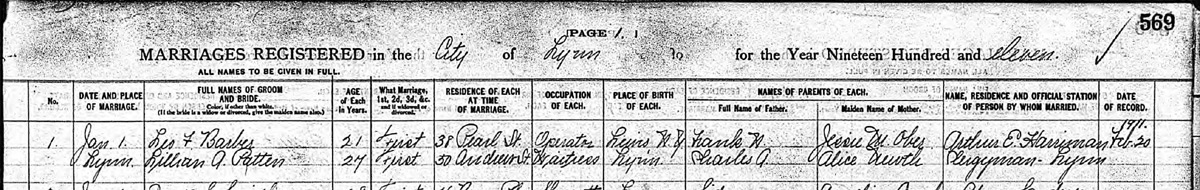 569
PAGE 1.
MARRIAGES REGISTERED in the City of Lynn to for the Year Nineteen Hundred and eleven.
ALL NAMES TO BE GIVEN IN FULL.
No. DATE AND PLACE OF MARRIAGE. FULL NAMES OF GROOM AND BRIDE. Color, if other than white. (If the bride is a widow or divorced, give the maiden name also.) AGE of Each in Years. What Marriage, 1st, 2d, 3d, &c. and if widowed or divorced. RESIDENCE OF EACH AT TIME OF MARRIAGE. OCCUPATION OF EACH. PLACE OF BIRTH OF EACH. NAMES OF PARENTS OF EACH. Full Name of Father. Maiden Name of Mother. NAME, RESIDENCE AND OFFICIAL STATION OF PERSON BY WHOM MARRIED. DATE OF RECORD.
1911.
1. Jan. 1. Leo F Barber 21 First 38 Pearl St. Operator N.Y. Frank W. Jessie M. Ober Arthur E. Harriman Feb. 20
Lynn. Lillian A. Patten 27 First 50 Andrew St. Waitress Lynn. Charles A. Alice Clergyman - Lynn